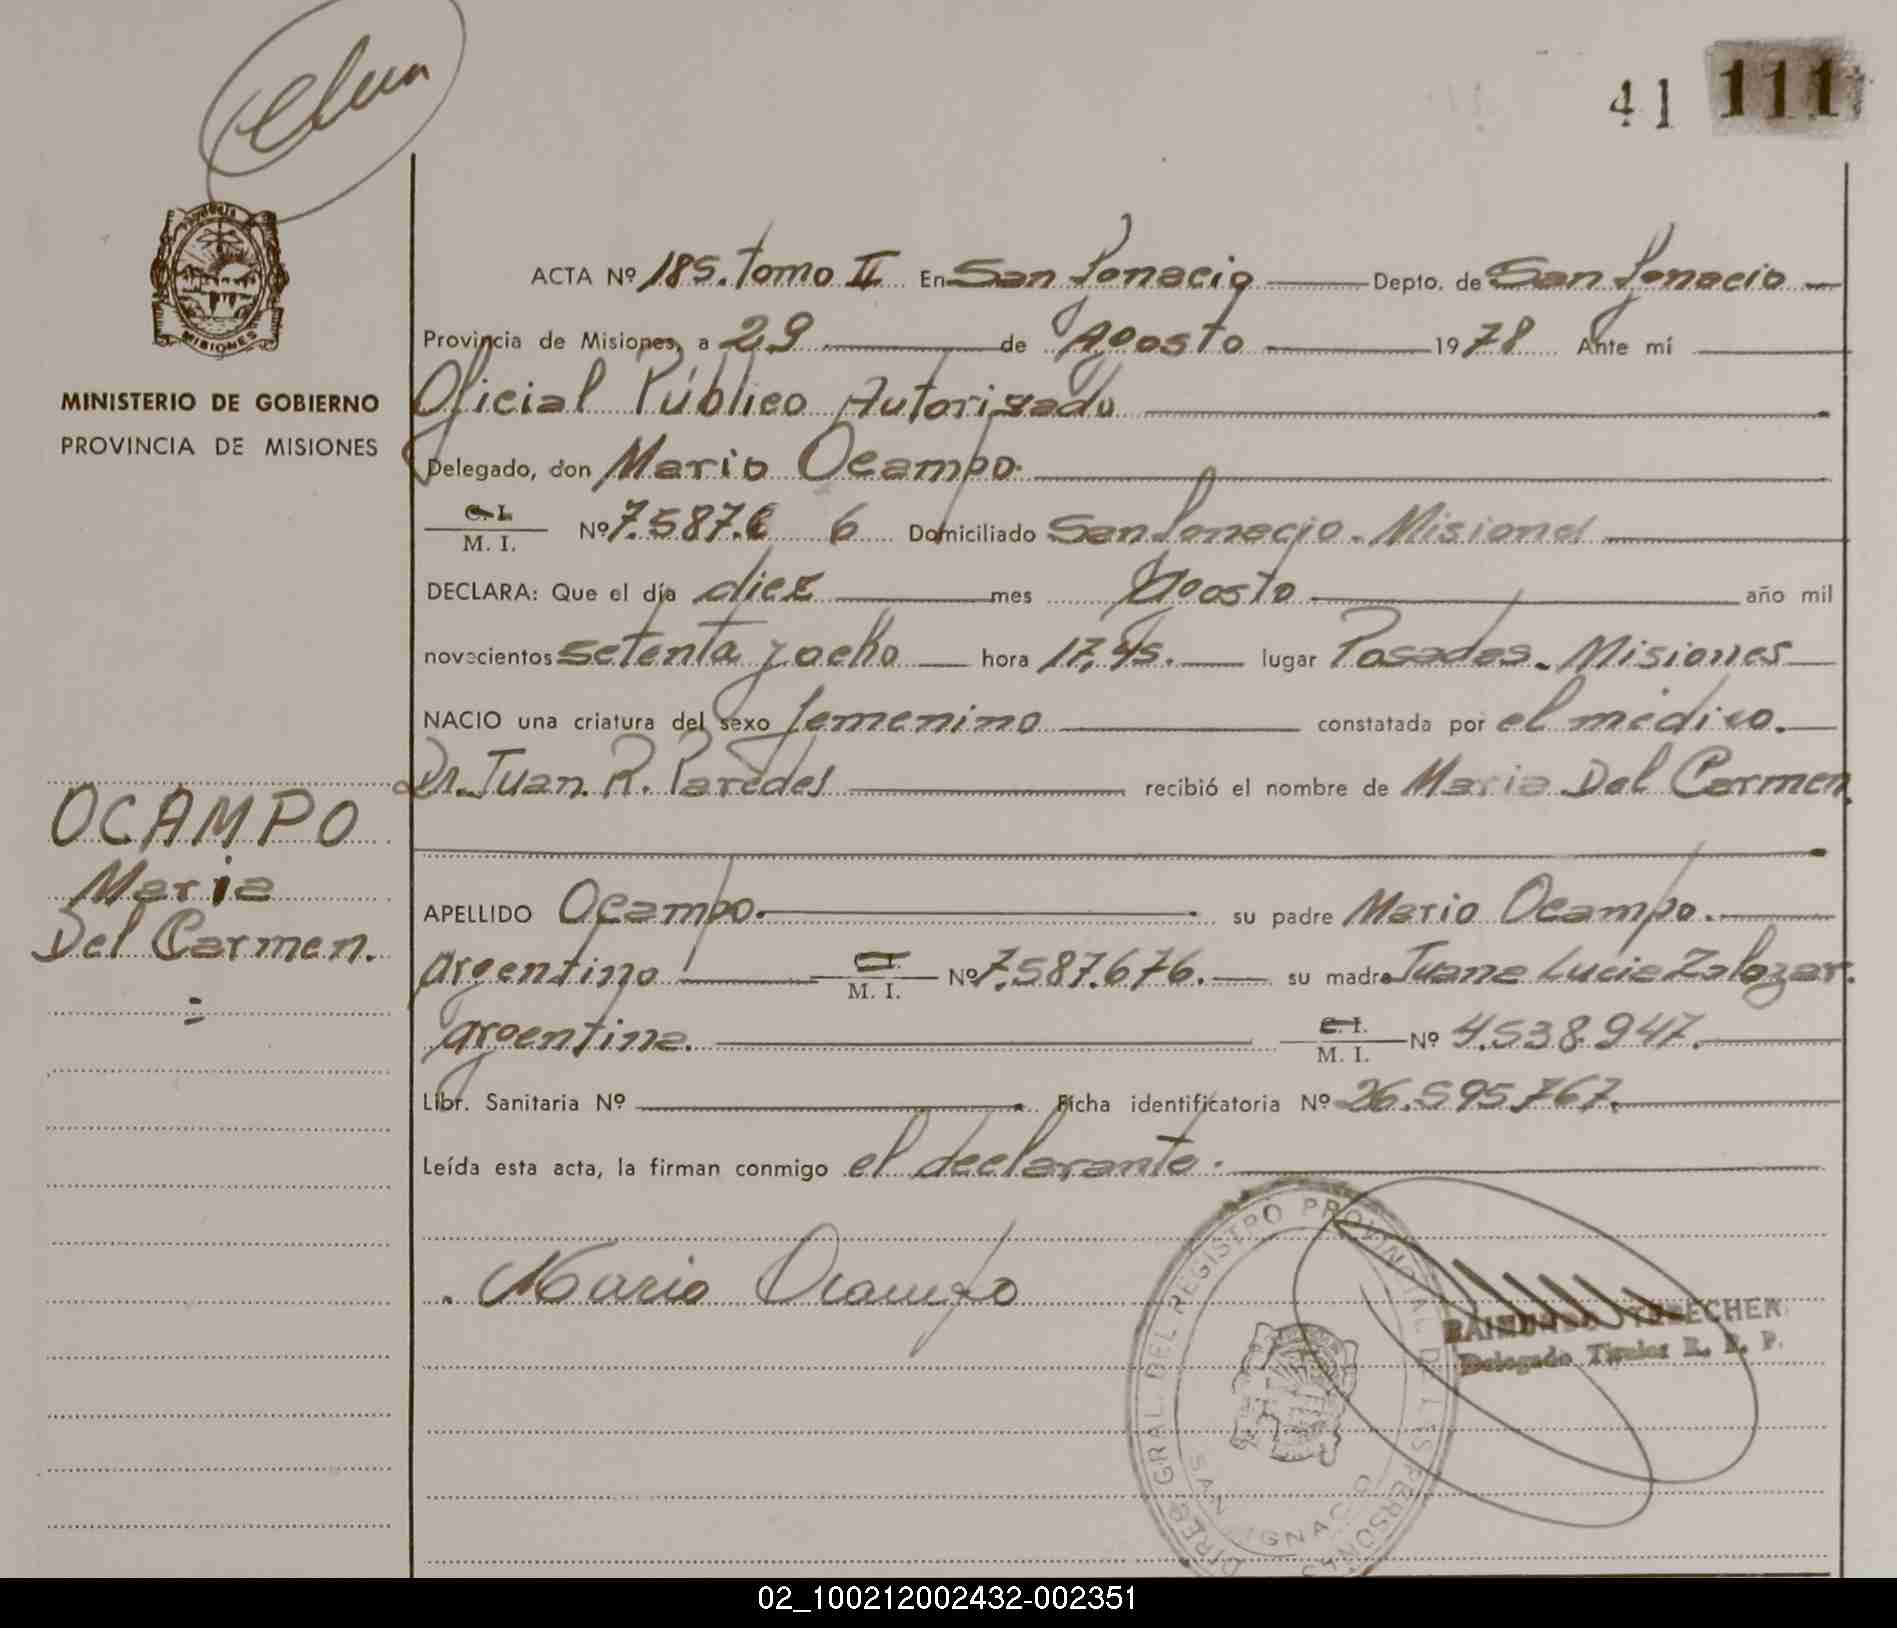 41 111
ACTA Nº 185. Tomo II En San Ignacio Depto. de San Ignacio
Provincia de Misiones, a 29 de Agosto 1978 Ante mí
MINISTERIO DE GOBIERNO
PROVINCIA DE MISIONES
Oficial Público Autorizado
Delegado, don Mario Ocampo.
C. I.
M. I. Nº 7.587.6 6 Domiciliado San Ignacio. Misiones
DECLARA: Que el día diez mes Agosto año mil
novecientos setenta y ocho hora 17,45. lugar Posadas. Misiones
NACIO una criatura del sexo femenino constatada por el médico.
Dr. Juan. R. Paredes recibió el nombre de Maria Del Carmen.
OCAMPO
Maria
Del Carmen.
=
APELLIDO Ocampo. su padre Mario Ocampo.
argentino C. I.
M. I. Nº 7.587.676. su madre Juana Lucia Zalazar.
argentina. C. I.
M. I. Nº 4.538.947.
Libr. Sanitaria Nº Ficha identificatoria Nº 26.595.767.
Leída esta acta, la firman conmigo el declarante.
Mario Ocampo
DIREC. GRAL. DEL REGISTRO PROVINCIAL DE LAS PERSONAS
SAN IGNACIO
Delegado Titular R. P. P.
MISIONES
02_100212002432-002351